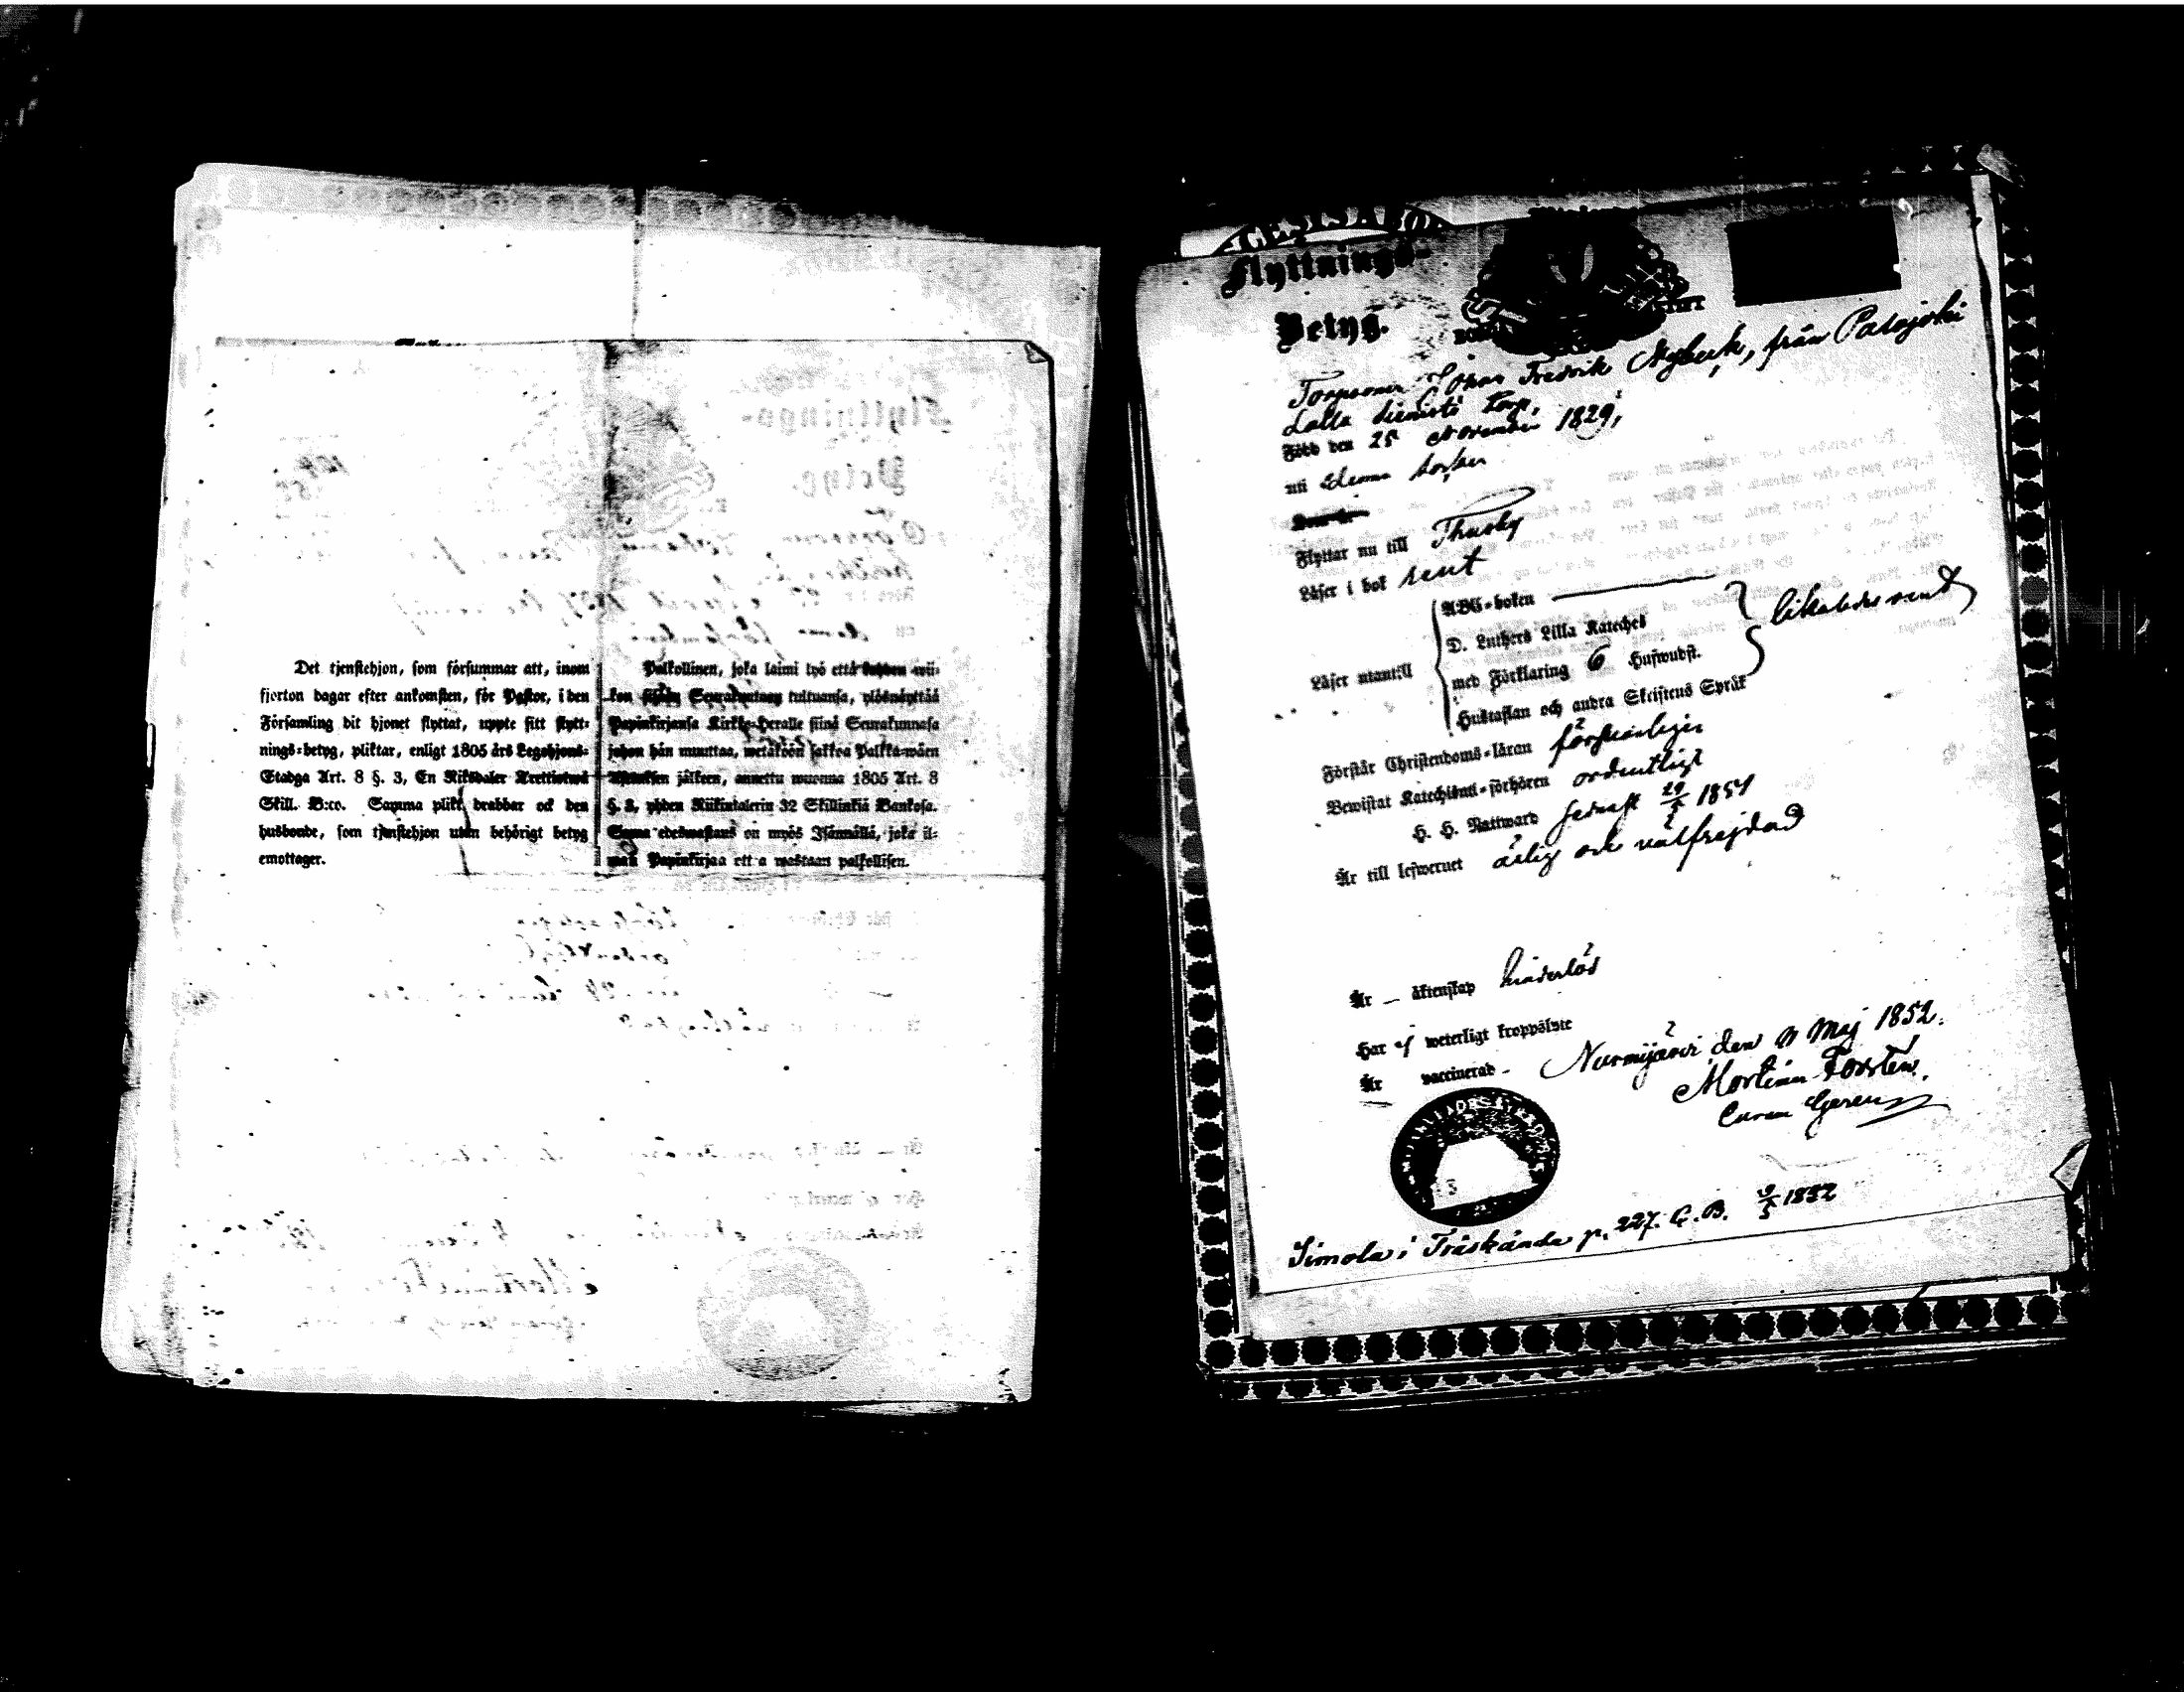 Det tjenstehjon, som försummar att, inom
fjorton dagar efter ankomsten, för Pastor, i den
Församling dit hjonet flyttat, uppte sitt flytt-
nings-betyg, pliktar, enligt 1805 års Legohjons-
Stadga Art. 8 §. 3, En Riksdaler Trettiotwå
Skill. B:co. Samma plikt drabbar ock den
husbonde, som tjenstehjon utan behörigt betyg
emottager.
Palkollinen, joka laimi lyö että kahden wii-
kon sisään Seurakuntaan tultuansa, ylösnäyttää
Papinkirjansa Kirkko-Herralle siinä Seurakunnasa
johon hän muuttaa, wetäköön sakkoa Palkka-wäen
jälkeen, annettu wuonna 1805 Art. 8
§. 3, yhden Riikintalerin 32 Skillinkiä Bankosa.
Sama edeswastaus on myös Isännällä, joka il-
man Papinkirjaa ott a wastaan palkollisen.
Flyttnings-
Betyg.
Fredrik Nybeck, från Palojoki
Lalla torp,
Född den 25 November 1829,
uti denna socken
Flyttar nu till Thusby
Läser i bok rent
Läser utantill
ABC-boken
D. Luthers Lilla Kateches
med Förklaring 6 Hufwudst.
Hustaflan och andra Skriftens Språk
likaledes rent
Förstår Christendoms-läran försvarligen
Bewistat Katechismi-förhören ordentligt
H. H. Nattward sednast 1851
Är till lefwernet ärlig och välfrejdad
Är — äktenskap hinderlös
Har ej weterligt kroppslyte
Är vaccinerad -
Nurmijärvi den 9 Maj 1852.
Martin Forstén.
Simola i Träskända p. 227. C. B. 9/5 1852